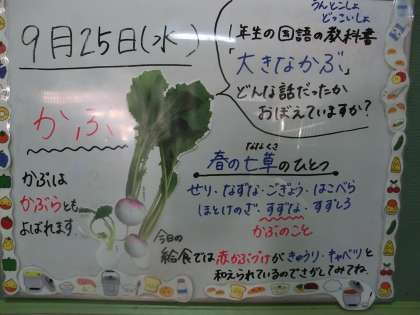 9月25日(水)
うんとこしょ
どっこいしょ
1年生の国語の教科書
「大きなかぶ」
どんな話だったか
おぼえていますか?
かぶ
かぶは
かぶらとも
よばれます。
ななくさ
春の七草のひとつ
せり・なずな・ごぎょう・はこべら
ほとけのざ・すずな・すずしろ
かぶのこと
今日の
給食では赤かぶづけがきゅうり・キャベツと
和えられているのでさがしてみてね。